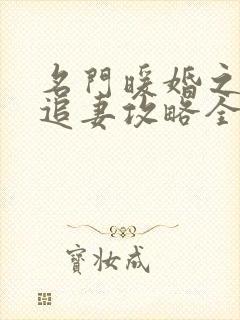 名門暖婚之
追妻攻略全
寶妝成